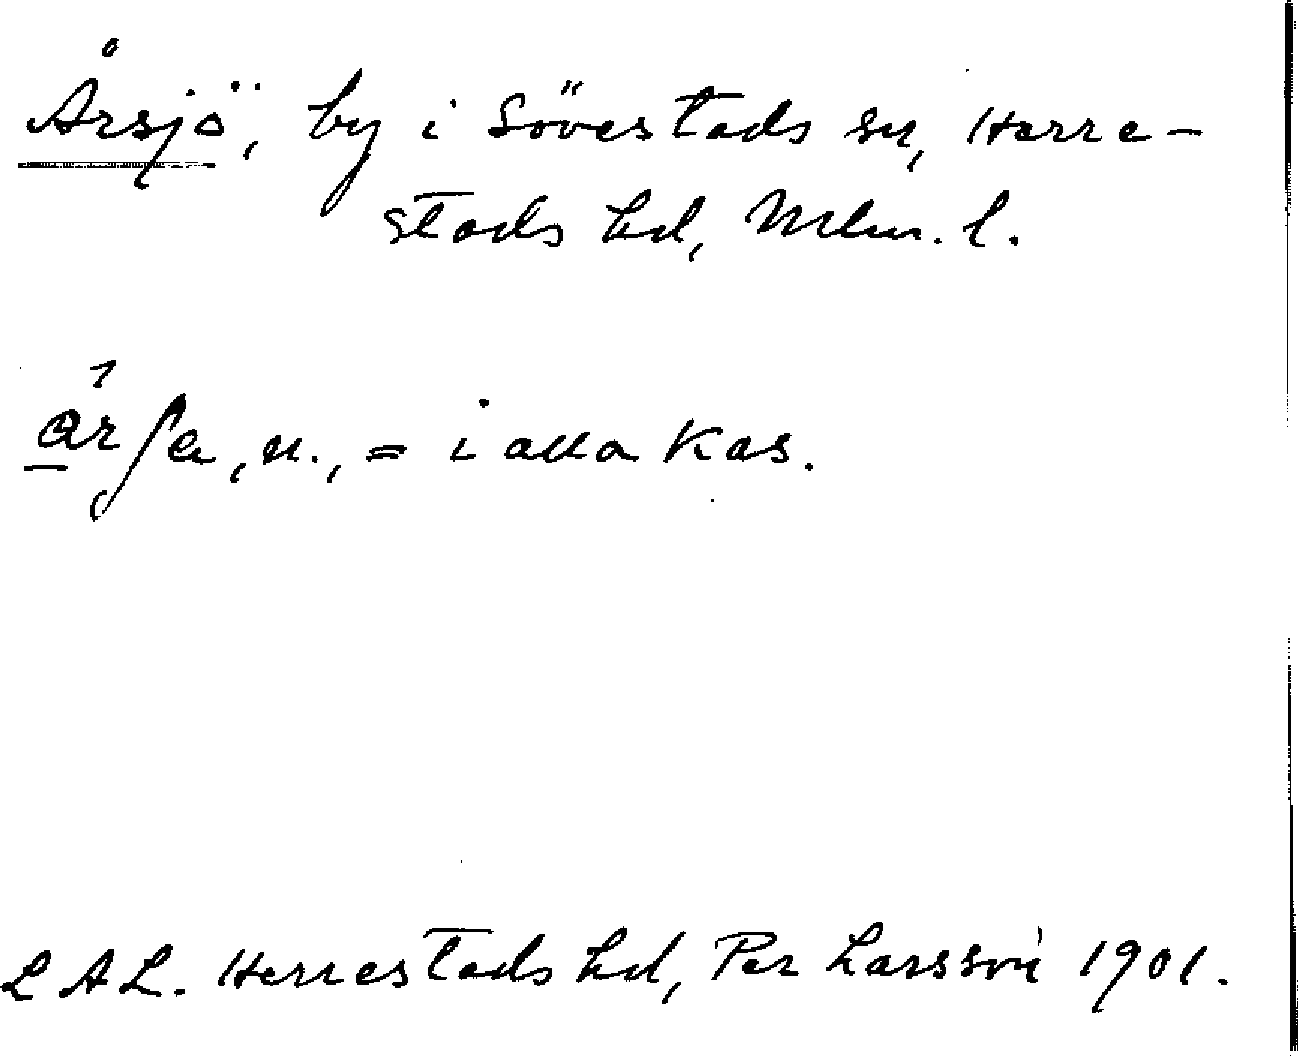 Årsjö, by i Sövestads sn, Herre-
stads hd, Mlm. l.
n., = i alla kas.
LAL. Herrestads hd, Per Larsson 1901.